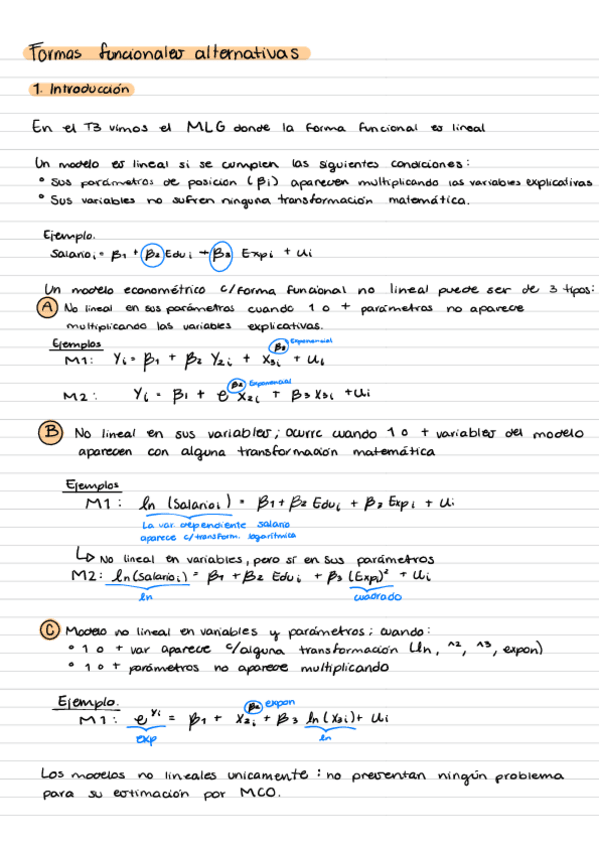 Formas funcionales alternativas
1. Introducción
En el T3 vimos el MLG donde la forma funcional es lineal
Un modelo es lineal si se cumplen las siguientes condiciones:
° Sus parámetros de posición (βi) aparecen multiplicando las variables explicativas
° Sus variables no sufren ninguna transformación matemática.
Ejemplo.
Salarioi = β1 + β2 Edui + β3 Expi + ui
Un modelo econométrico c/forma funcional no lineal puede ser de 3 tipos:
A No lineal en sus parámetros cuando 1 o + parámetros no aparece
multiplicando las variables explicativas.
Ejemplos
M1: Yi = β1 + β2 Y2i + X3i^β3 + ui
Exponencial
M2: Yi = β1 + e^β2 X2i + β3 X3i + ui
Exponencial
B No lineal en sus variables; ocurre cuando 1 o + variables del modelo
aparecen con alguna transformación matemática
Ejemplos
M1: ln (Salarioi) = β1 + β2 Edui + β3 Expi + ui
La var. dependiente salario
aparece c/transform. logarítmica
↳ No lineal en variables, pero sí en sus parámetros
M2: ln(Salarioi) = β1 + β2 Edui + β3 (Expi)² + ui
ln cuadrado
C Modelo no lineal en variables y parámetros; cuando:
° 1 o + var aparece c/alguna transformación (ln, ^2, ^3, expon)
° 1 o + parámetros no aparece multiplicando
Ejemplo.
M1: e^Yi = β1 + X2i^β2 + β3 ln(X3i) + ui
expon
exp ln
Los modelos no lineales unicamente : no presentan ningún problema
para su estimación por MCO.